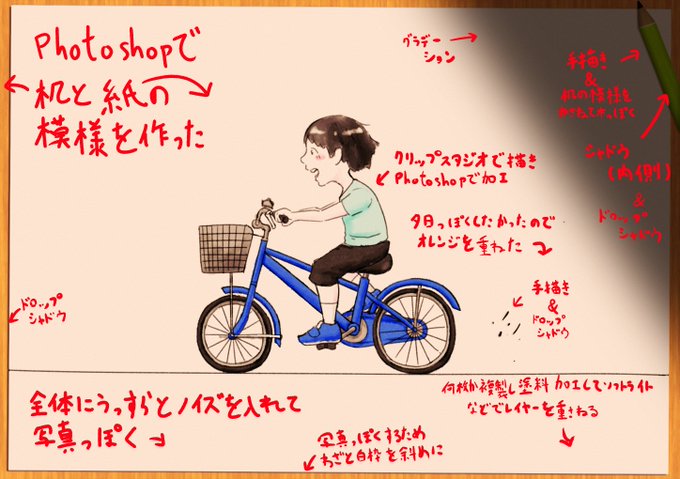 Photoshopで
机と紙の
模様を作った
グラデー
ション
手描き
&
机の模様を
かさねて木っぽく
シャドウ
(内側)
&
ドロップ
シャドウ
クリップスタジオで描き
Photoshopで加工
夕日っぽくしたかったので
オレンジを重ねた
手描き
&
ドロップ
シャドウ
ドロップ
シャドウ
全体にうっすらとノイズを入れて
写真っぽく
何枚か複製し塗料加工してソフトライト
などでレイヤーを重ねる
写真っぽくするため
わざと白枠を斜めに